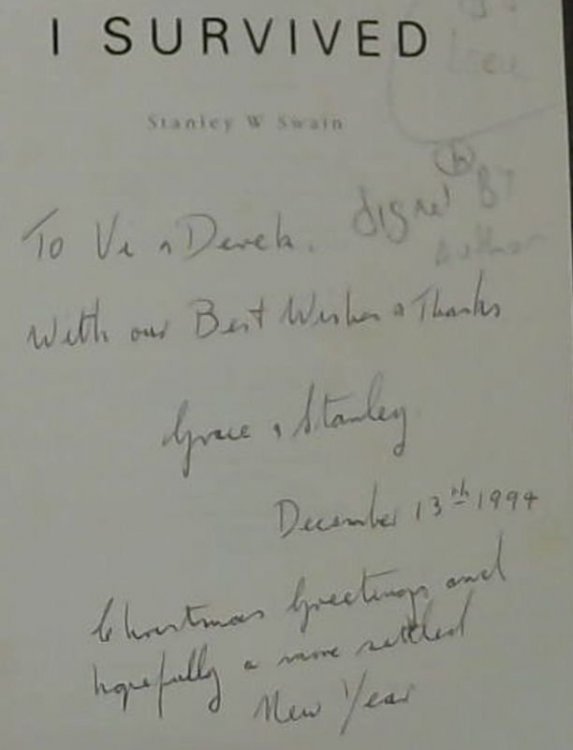 I SURVIVED
Stanley W Swain
Signed BY
Author
To Vi & Derek.
With our Best Wishes & Thanks
Grace & Stanley
December 13th 1994
Christmas Greetings and
hopefully a more settled
New Year